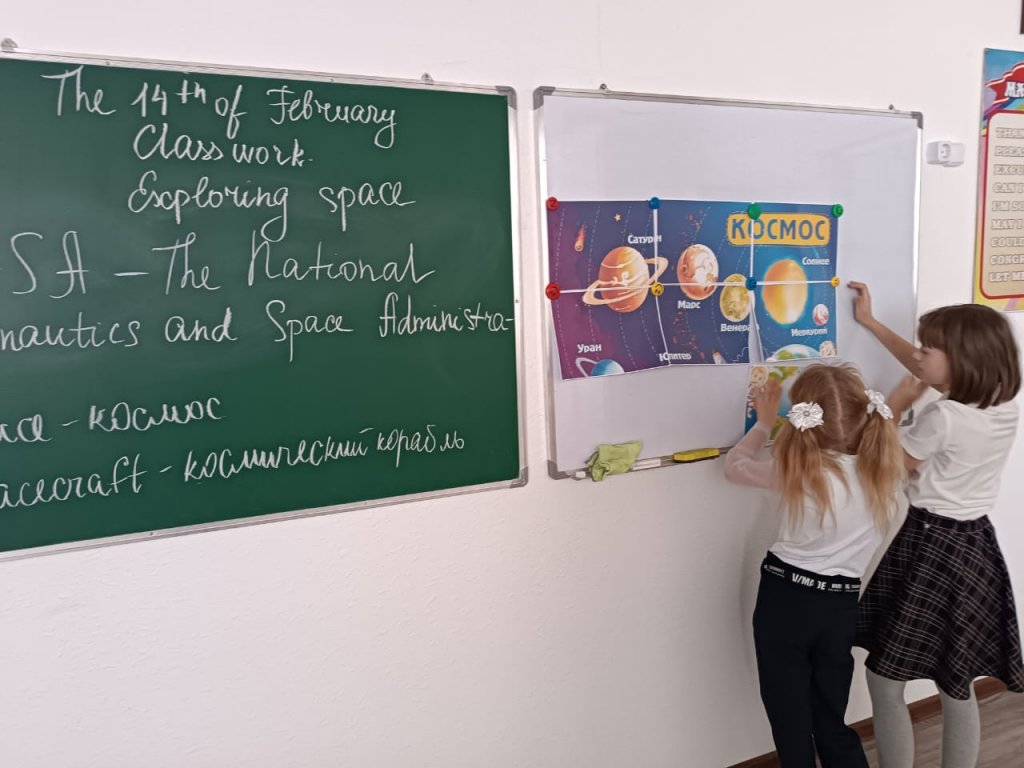 The 14th of February
Class work.
Exploring space
SA – The National
nautics and Space Administra-
ace - космос
acecraft - космический корабль
КОСМОС
Сатурн
Солнце
Марс
Венера
Меркурий
Уран
Юпитер